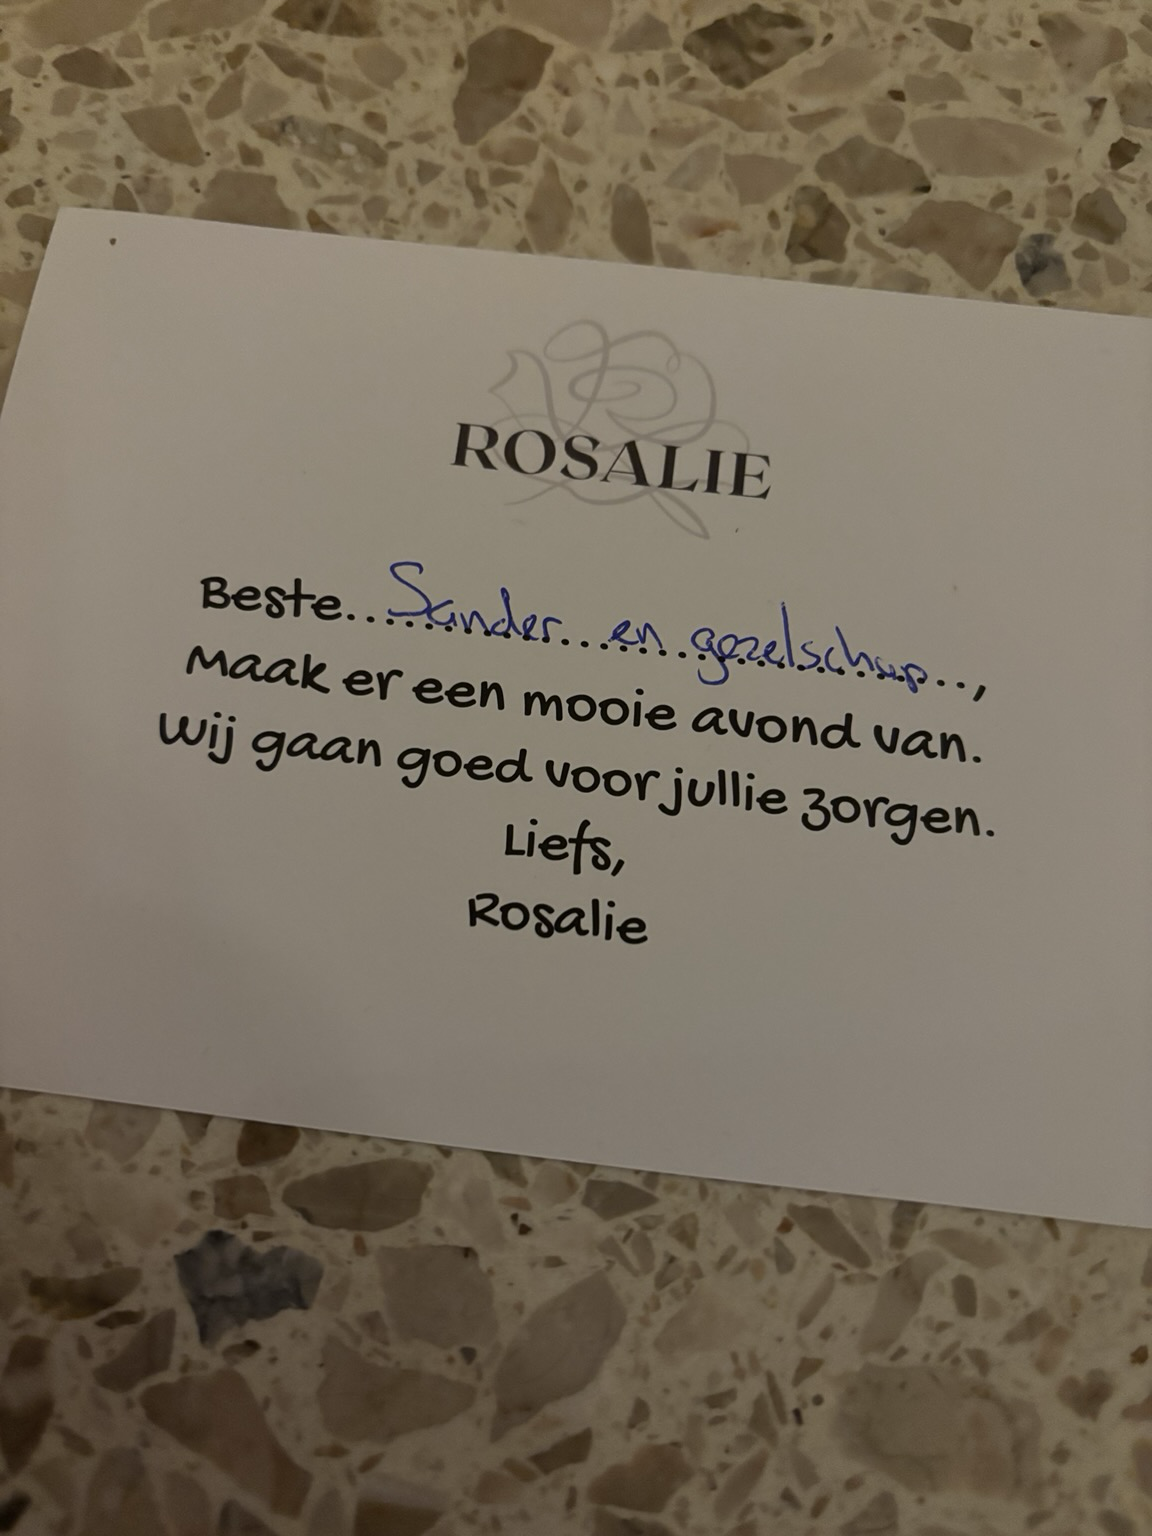 ROSALIE
Beste...Sander...en gezelschap...,
Maak er een mooie avond van.
Wij gaan goed voor jullie zorgen.
Liefs,
Rosalie